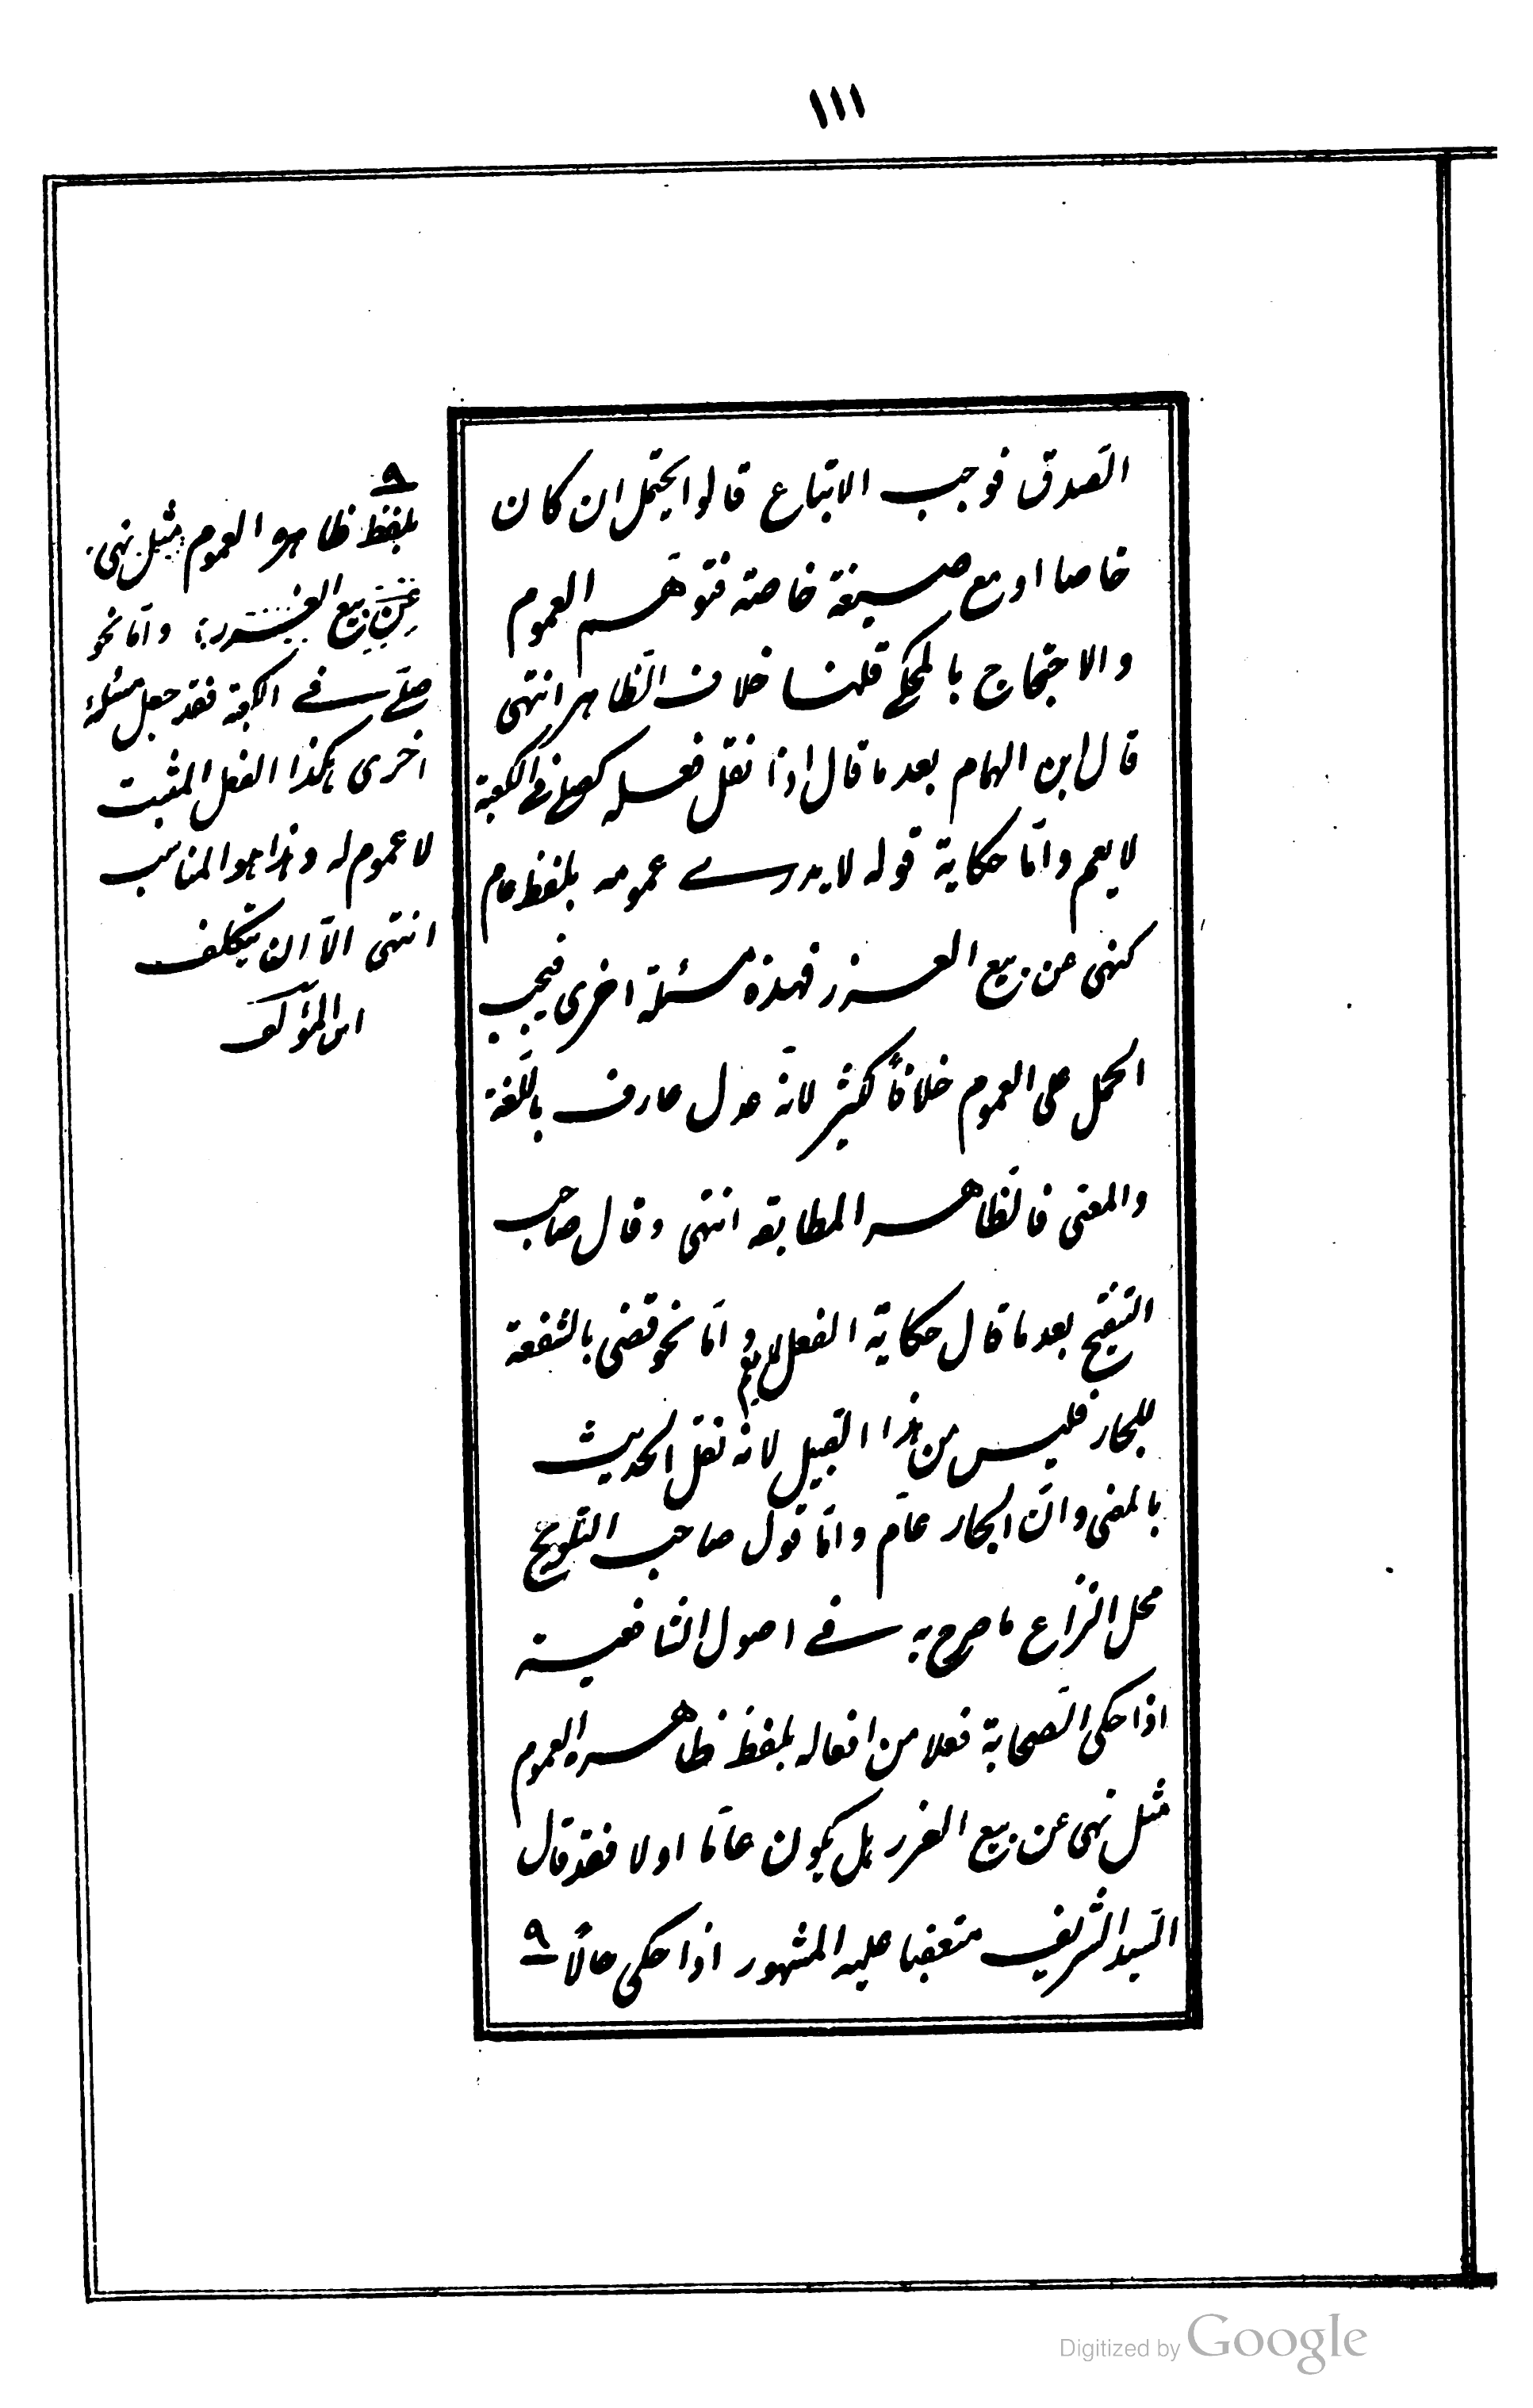 ١١١
الصّدق فوجب الاتباع قالوا يحتمل ان كان
خاصا او مع صيغة خاصة فتوهّم العموم
والاحتجاج بالمحكي قلنا خلاف الظّاهر انتهى
قال ابن الهمام بعد ما قال اذا نقل فعله كصلى فى الكعبة
لا يعم وامّا حكاية قوله لا يدرى عمومه بلفظ عام
كنهى عن بيع الغرر فهذه مسئلة اخرى فيجب
الحمل على العموم خلافاً لكثير لانّه عدل عارف باللّغة
والمعنى فالظّاهر المطابقه انتهى وقال صاحب
التنقيح بعد ما قال حكاية الفعل لا يعم وامّا نحو قضى بالشفعة
للجار فليس من هذا القبيل لانّه نقل الحديث
بالمعنى وانّ الجار عامّ وامّا قول صاحب التلويح
محل النزاع ما صرح به فى اصول الشافعية
اذا حكى الصّحابة فعلا من افعاله بلفظ ظاهره العموم
مثل نهى عن بيع الغرر هل يكون عامّا او لا فقد قال
السّيد الشريف متعقبا عليه المشهور اذا حكى حالاً ٩
٩
بلفظ ظاهره العموم مثل نهى
عن بيع الغرر، وامّا نحو
صلّى فى الكعبة فقد جعل مسئلة
اخرى هكذا الفعل المثبت
لا عموم له وهذا هو المناسب
انتهى الّا ان يتكلف
Digitized by Google